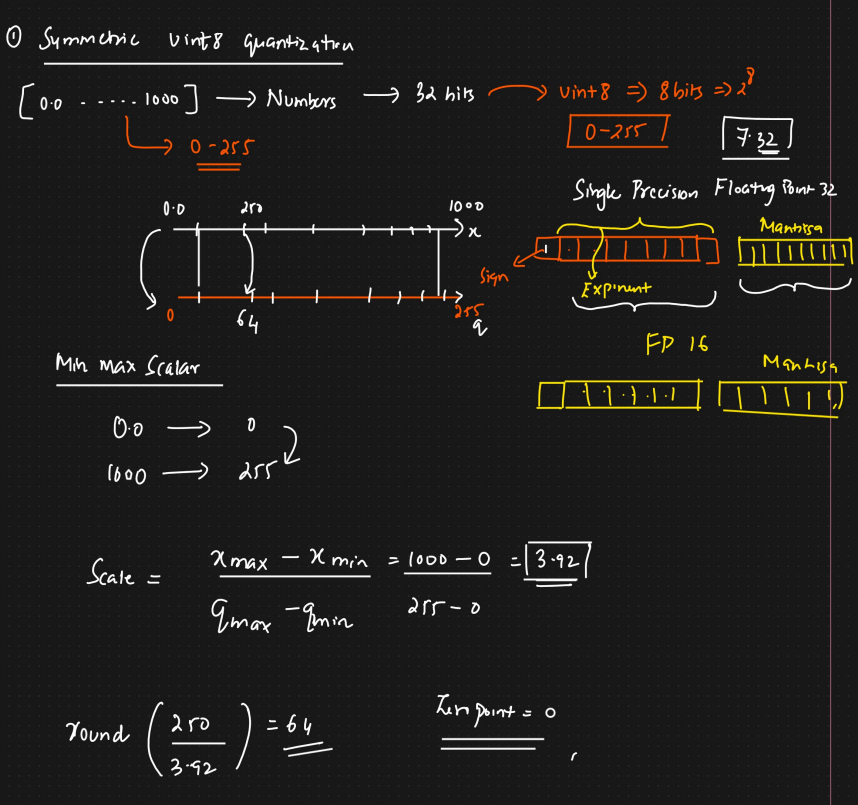 ① Symmetric uint8 quantization
[0.0 ...... 1000] → Numbers → 32 bits → uint8 ⇒ 8 bits ⇒ 2^8
→ 0-255
0-255
7.32
Single Precision Floating Point 32
0.0 250 1000
x
Mantissa
1
Sign
Exponent
0 64 255
q
FP 16
Mantissa
Min max Scalar
0.0 → 0
1000 → 255
Scale = (xmax - xmin) / (qmax - qmin) = (1000 - 0) / (255 - 0) = 3.92
round (250 / 3.92) = 64
Zero point = 0